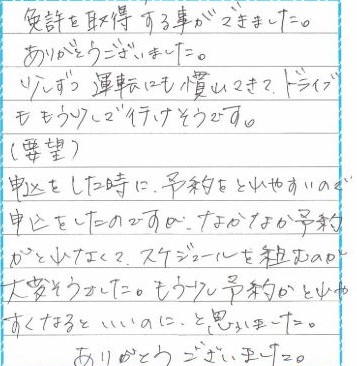 免許を取得する事ができました。
ありがとうございました。
少しずつ運転にも慣れてきて、ドライブ
ももう少しで行けそうです。
(要望)
申込をした時に、予約をとれやすいので
申込をしたのですが、なかなか予約
がとれなくて、スケジュールを組むのが
大変そうでした。もう少し予約がとれや
すくなるといいのに、と思いました。
ありがとうございました。